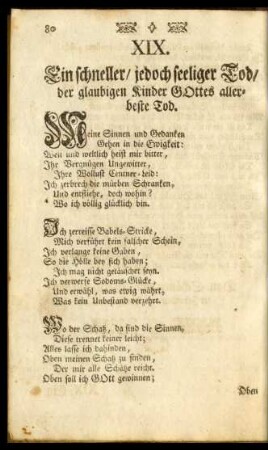 80
XIX.
Ein schneller/ jedoch seeliger Tod/
der glaubigen in Kinder GOttes aller-
beste Tod.
Meine Sinnen und Gedancken
Gehen in die Ewigkeit:
Weil und weltlich heist mir bitter,
Ihr Vergnügen Ungewitter,
Ihre Wollust Centner-leid:
Ich zerbrech die mürben Schrancken,
Und entfliehe, doch wohin?
Wo ich völlig glücklich bin.
Ich zerreisse Babels-Stricke,
Mich verführt kein falscher Schein,
Ich verlange keine Gaben,
So die Hölle bey sich haben;
Ich mag nicht getäuschet seyn.
Ich verwerfe Sodoms-Glücke,
Und erwähl, was ewig währt,
Was kein Unbestand verzehrt.
Wo der Schatz, da sind die Sinnen,
Diese wennet keiner leicht;
Alles lasse ich dahinden,
Oben meinen Schatz zu finden,
Der mir alle Schätze reicht.
Oben soll ich GOtt gewinnen;
Oben